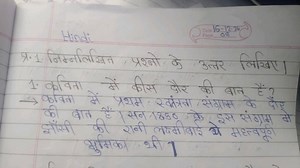 Hindi
प्र.1 निम्नलिखित प्रश्नो के उत्तर लिखिए।
1. कविता में कीस दौर की बात है?
→ कविता में प्रथम स्वतंत्रता संग्राम के दौर
की बात है। सन इस संग्राम में
झाँसी की रानी लक्ष्मीबाई ने महत्वपूर्ण
भुमिका थी।